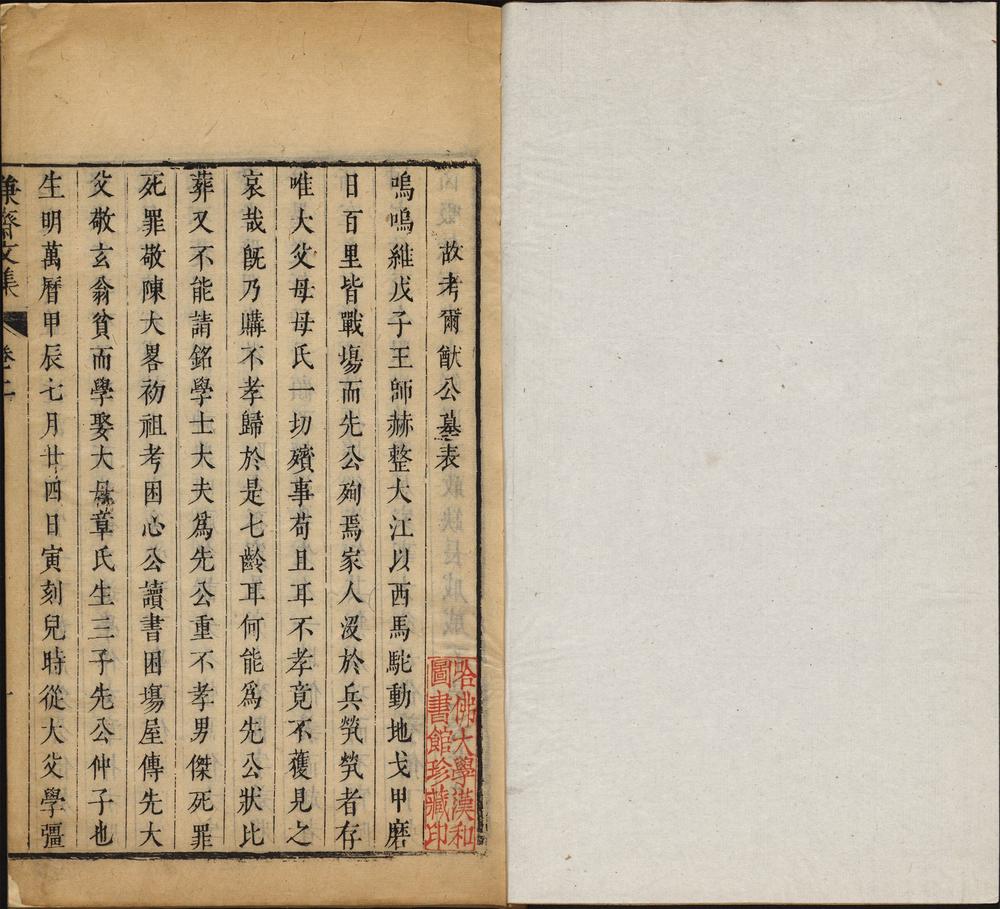 故考爾猷公墓表
嗚嗚維戊子王師赫整大江以西馬駝動地戈甲磨
日百里皆戰塲而先公殉焉家人沒於兵煢煢者存
唯大父母母氏一切殯事苟且耳不孝竟不獲見之
哀哉旣乃購不孝歸於是七齡耳何能爲先公狀比
葬又不能請銘學士大夫爲先公重不孝男傑死罪
死罪敬陳大畧初祖考困心公讀書困塲屋傳先大
父敬玄翁貧而學娶大母章氏生三子先公仲子也
生明萬曆甲辰七月廿四日寅刻兒時從大父學彊
齋文集 卷二
哈佛大學漢和
圖書館珍藏印